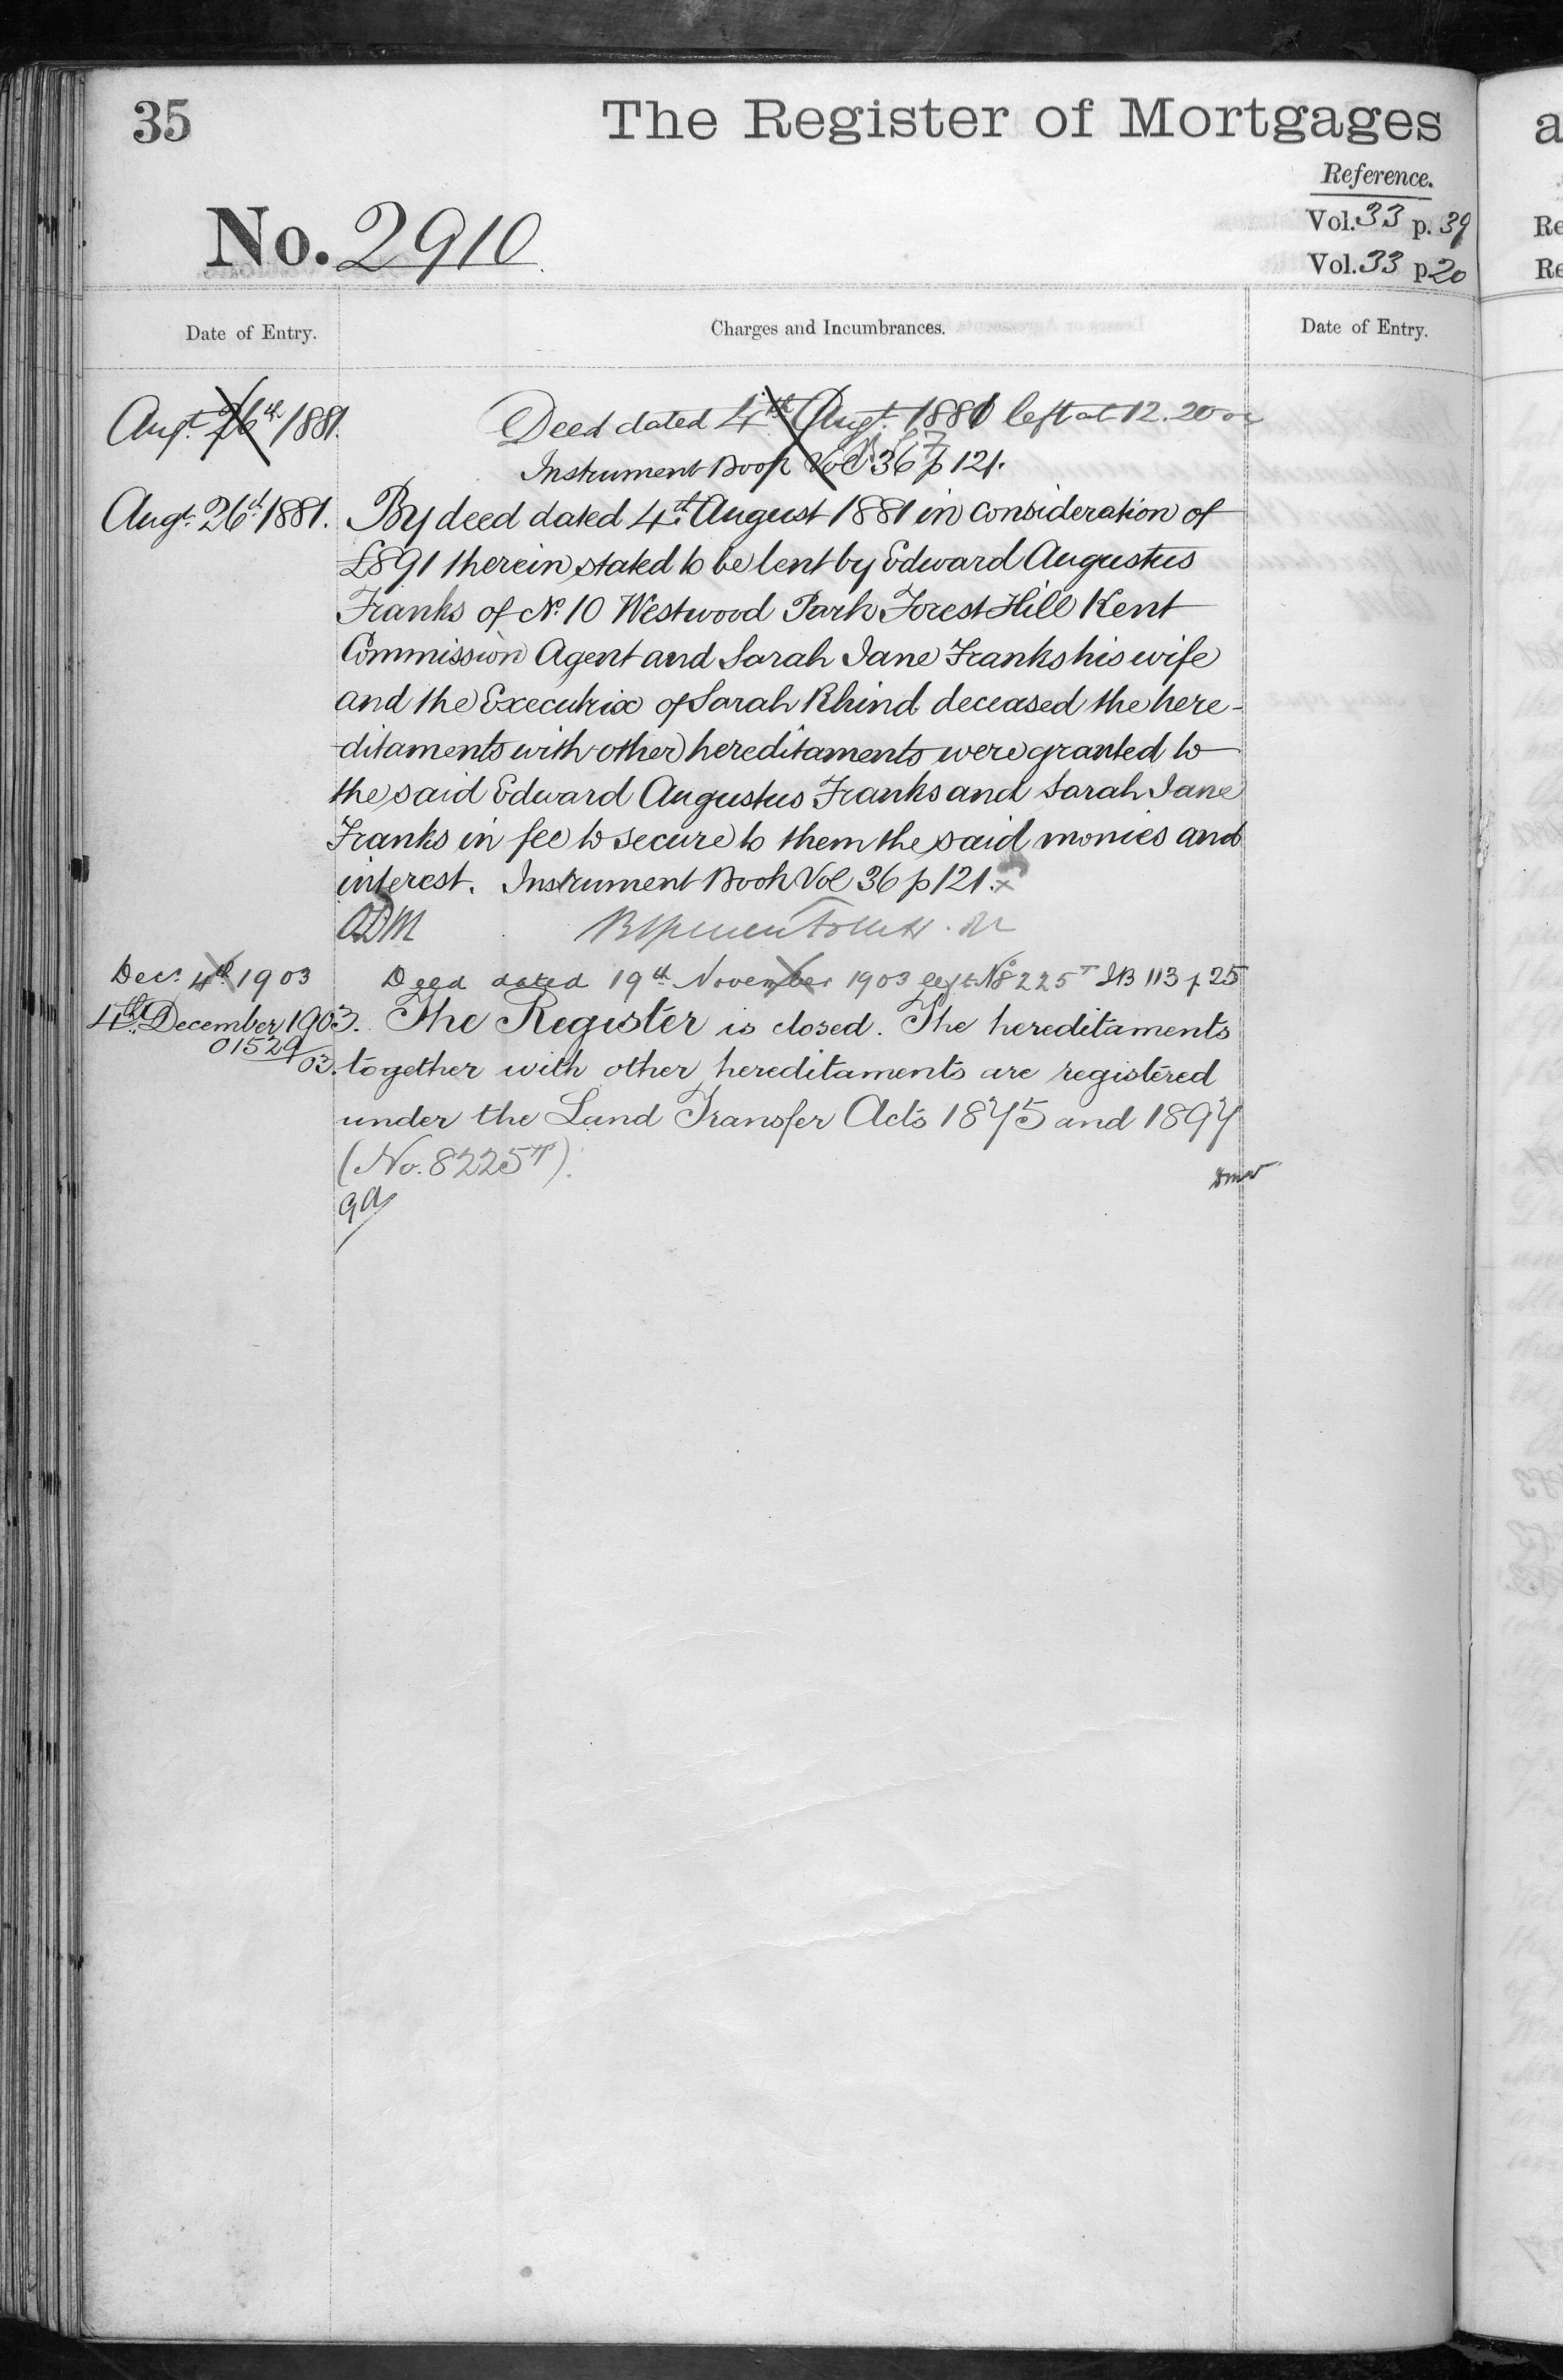 35
The Register of Mortgages
Reference.
Vol. 33 p. 39
Vol. 33 p 20
No. 2910
Date of Entry.
Charges and Incumbrances.
Date of Entry.
Augt. 26th 1881.
Deed dated 4th Augt. 1881 left at 12.20
Instrument Book Vol 36 p 121.
Augt. 26th 1881.
By deed dated 4th August 1881 in consideration of
£891 therein stated to be lent by Edward Augustus
Franks of No. 10 Westwood Park Forest Hill Kent
Commission Agent and Sarah Jane Franks his wife
and the Executrix of Sarah Rhind deceased the here-
ditaments with other hereditaments were granted to
the said Edward Augustus Franks and Sarah Jane
Franks in fee to secure to them the said monies and
interest. Instrument Book Vol 36 p 121.x
ODM
Decr. 4th 1903
Deed dated 19th November 1903 left No 8225 T IB 113 p 25
4th December 1903.
01529/03.
The Register is closed. The hereditaments
together with other hereditaments are registered
under the Land Transfer Acts 1875 and 1897
(No. 8225 T).
ga
a
Re
Re